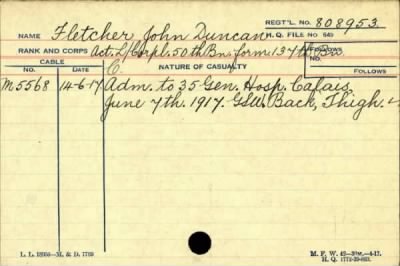 REGT'L. No. 808953.
NAME Fletcher John Duncan H. Q. FILE No 649
RANK AND CORPS Act. L/Corpl. 50th Bn. form. 137th Bn. FOLLOWS
CABLE
No. DATE C. NATURE OF CASUALTY FOLLOWS
M5568 14-6-17 Adm. to 35 Gen. Hosp. Calais
June 7th. 1917. GSW. Back, Thigh.
L. L. M. & D. 7759
M. F. W. 42—M.—4-17.
H. Q. 1772-39-893.